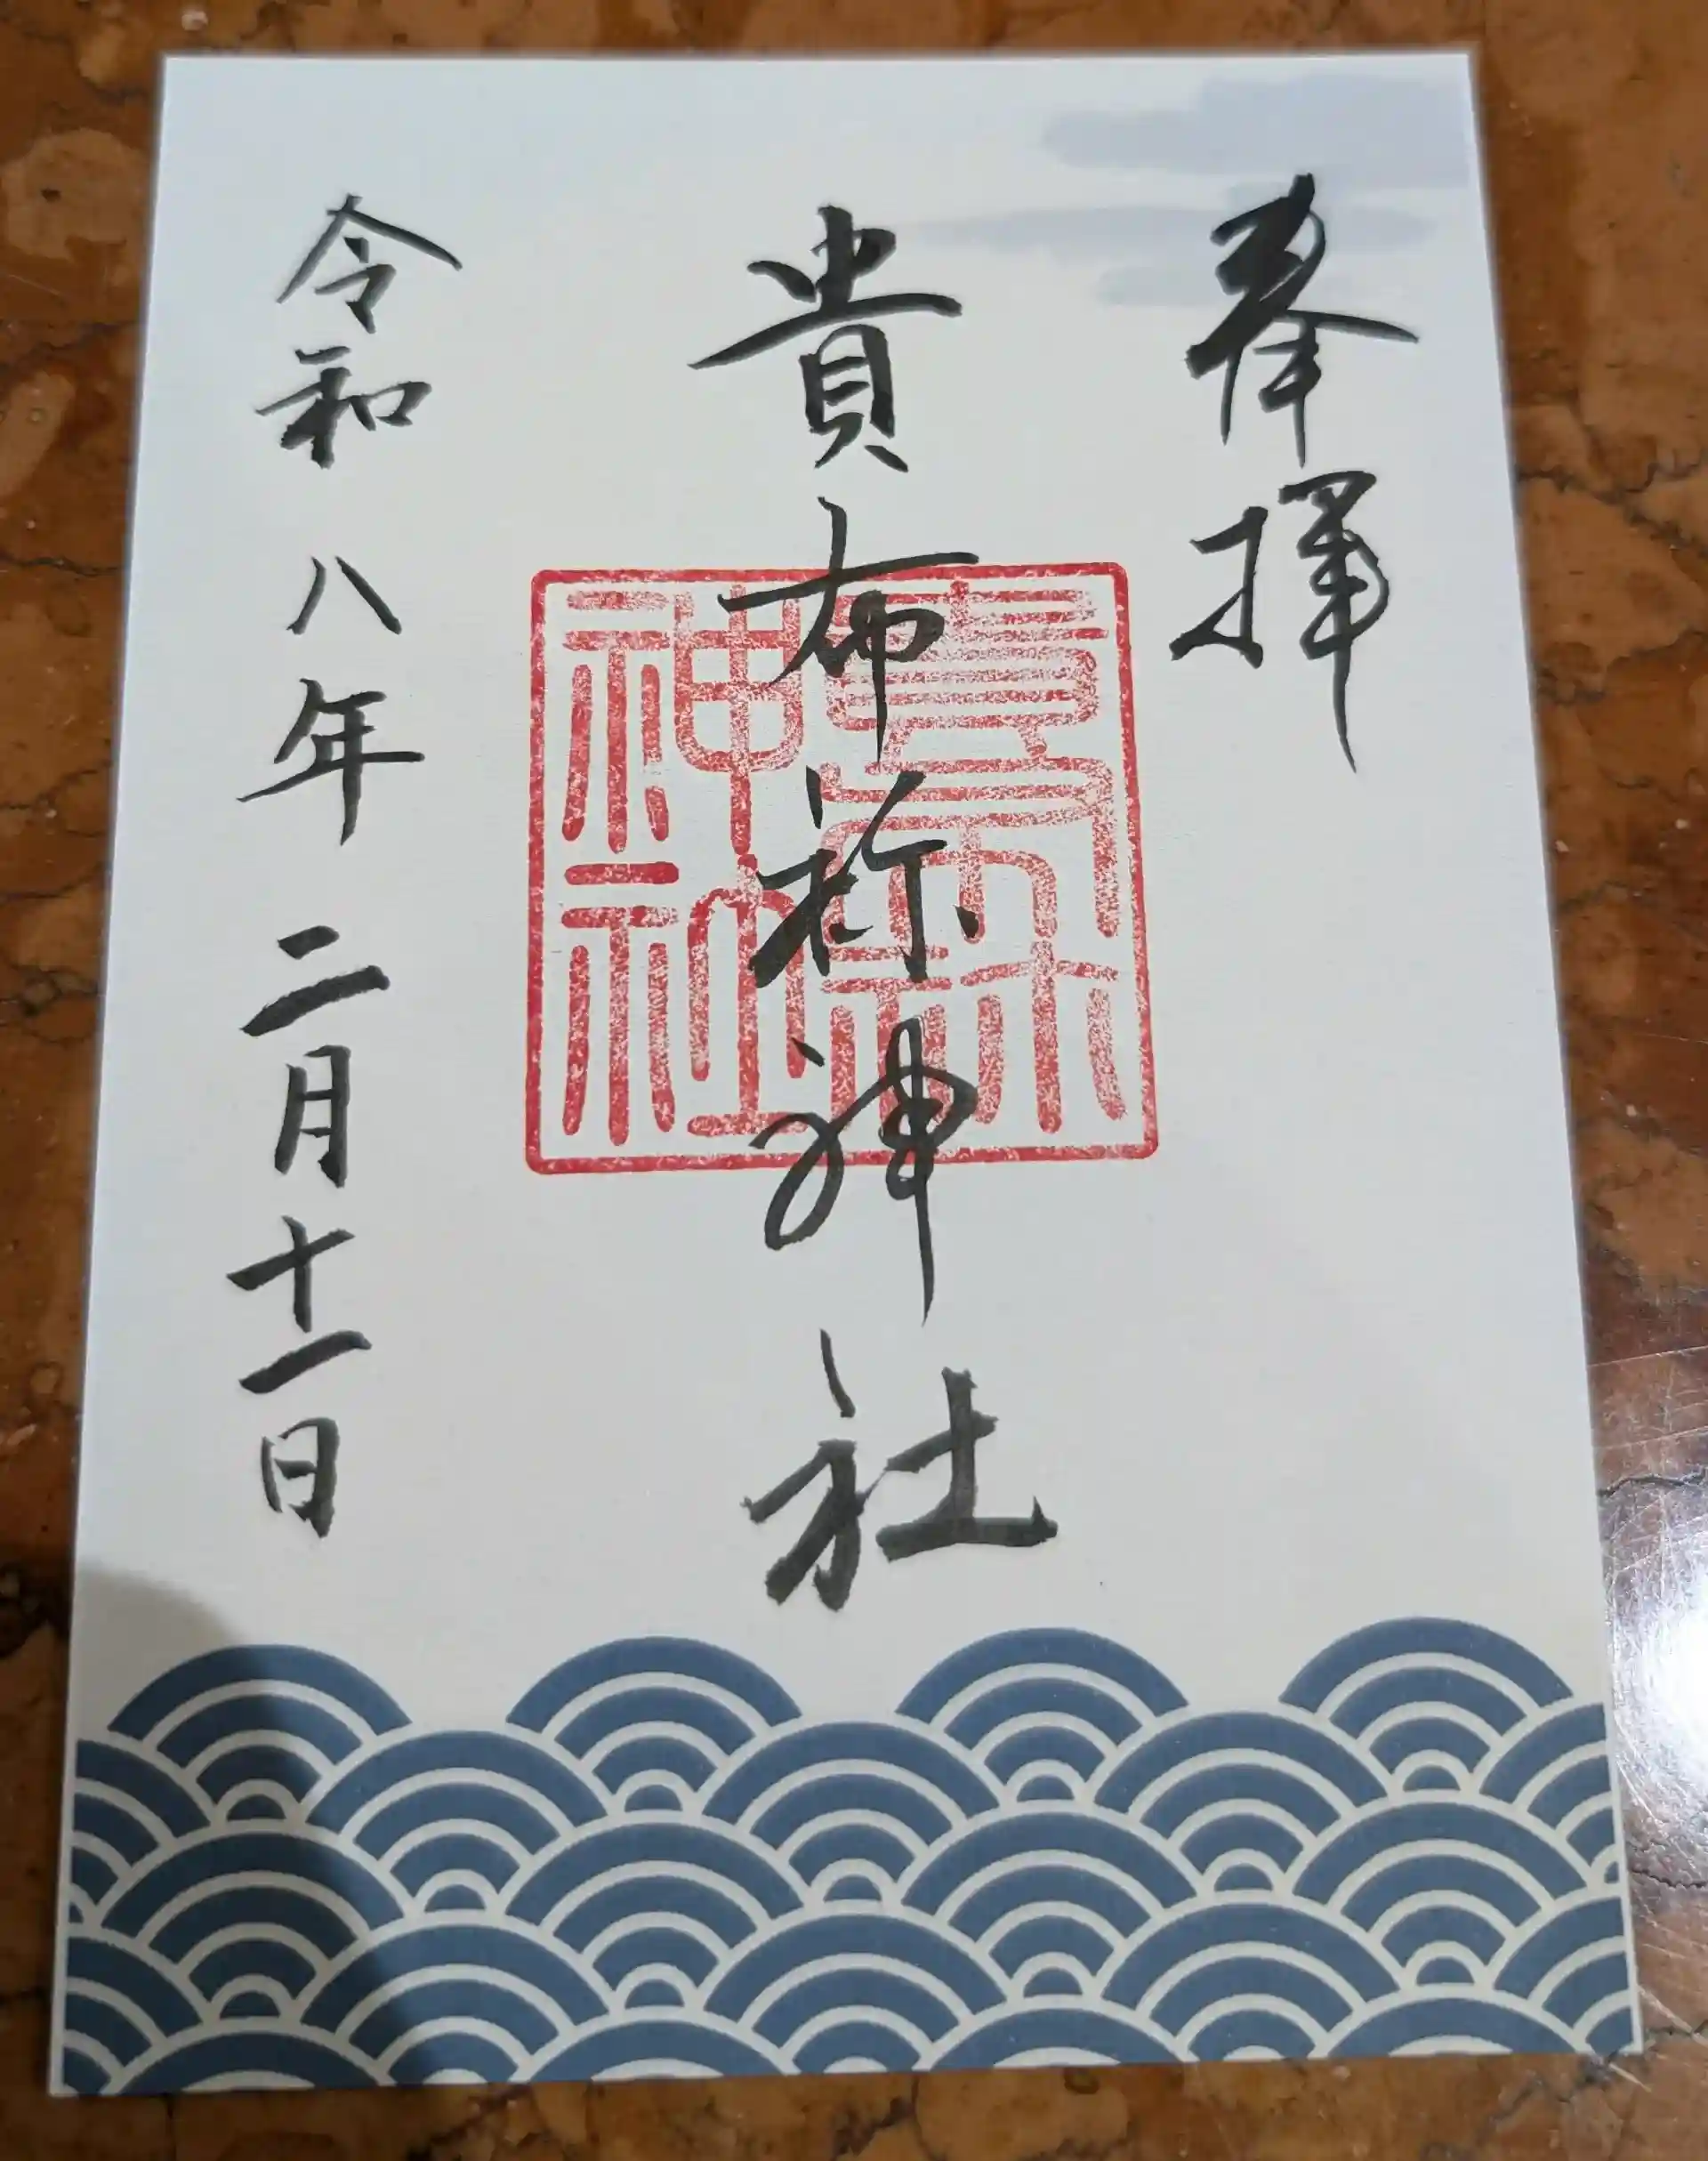 奉拝
貴布祢神社
令和八年二月十一日
貴布祢
神社